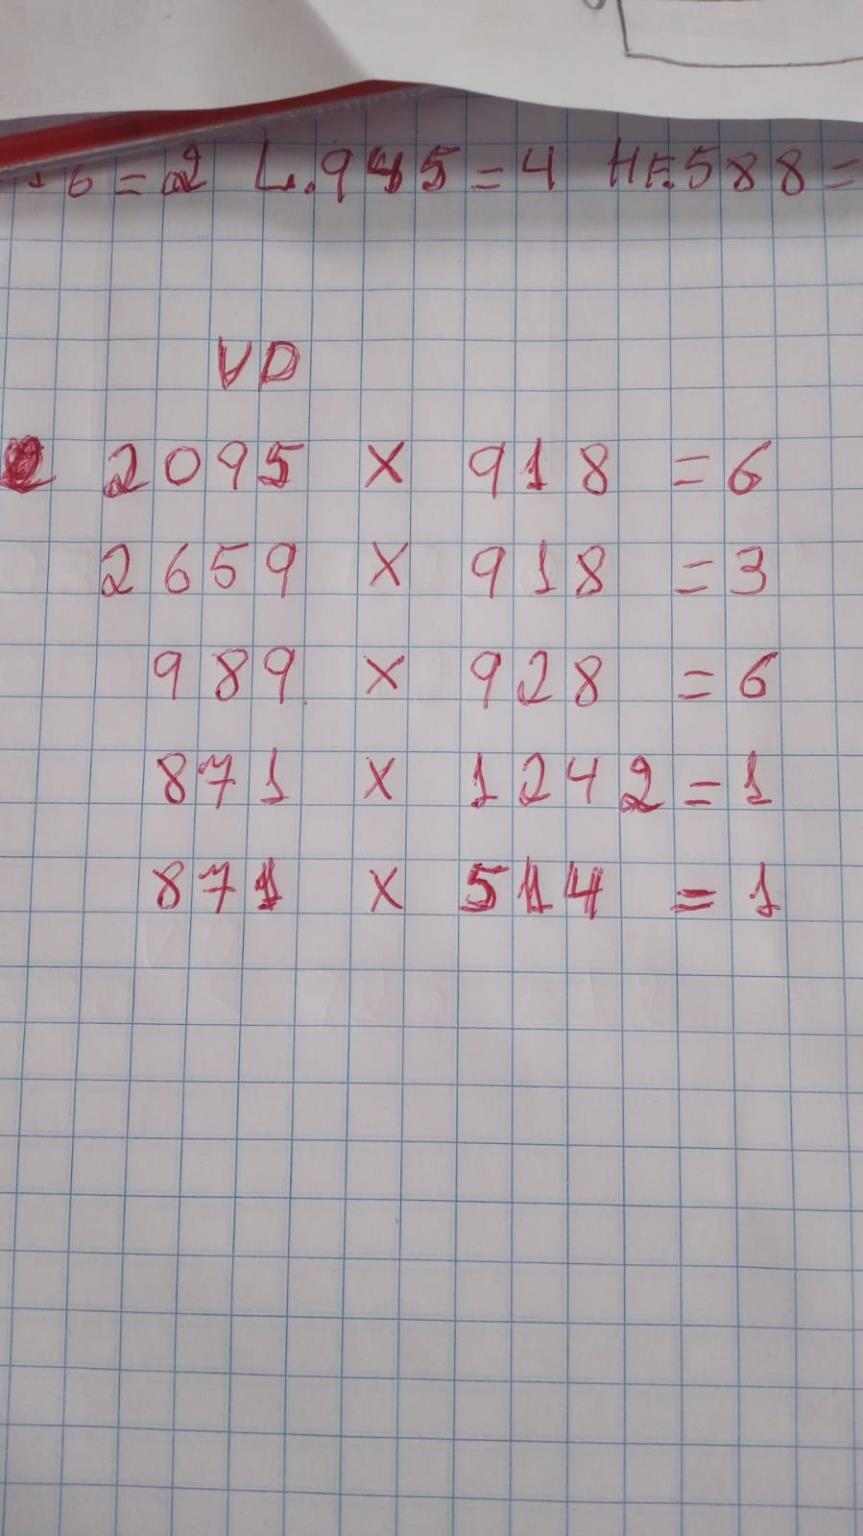 6 = 2 L.945 = 4 H.588 =
VD
2095 X 918 = 6
2659 X 918 = 3
989 X 928 = 6
871 X 1242 = 1
871 X 514 = 1